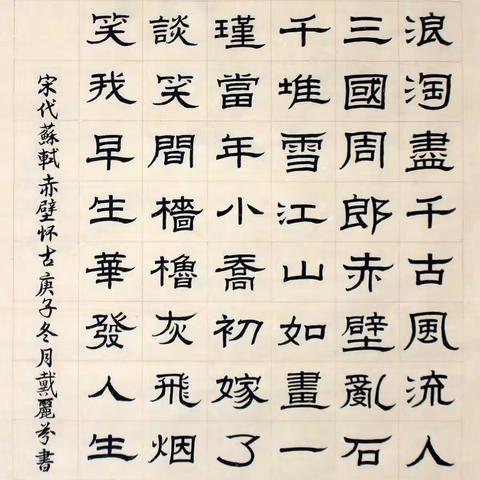 浪淘盡千古風流人
三國周郎赤壁亂石
千堆雪江山如畫一
瑾當年小喬初嫁了
談笑間檣櫓灰飛烟
笑我早生華發人生
宋代蘇軾赤壁怀古庚子冬月戴麗芬書